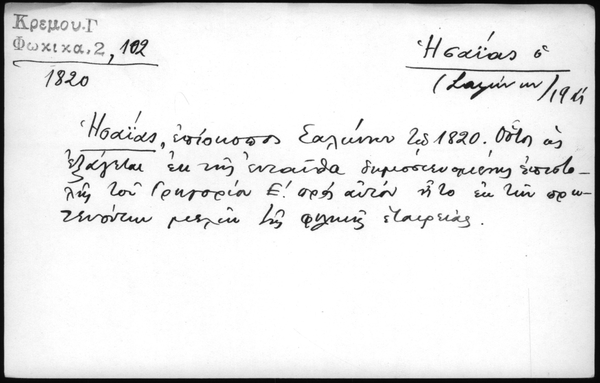 Κρεμου.Γ
Φωκικα,2, 102
1820
Ἡσαΐας ὁ
(Σαλώνων)/19
Ἡσαΐας, ἐπίσκοπος Σαλώνων τῷ 1820. Οὗτος ὡς
ἐξάγεται ἐκ τῆς ἐνταῦθα δημοσιευομένης ἐπιστο-
λῆς τοῦ Γρηγορίου Ε! πρὸς αὐτὸν ἦτο ἐκ τῶν πρω-
τευόντων μελῶν τῆς φιλικῆς ἑταιρείας.